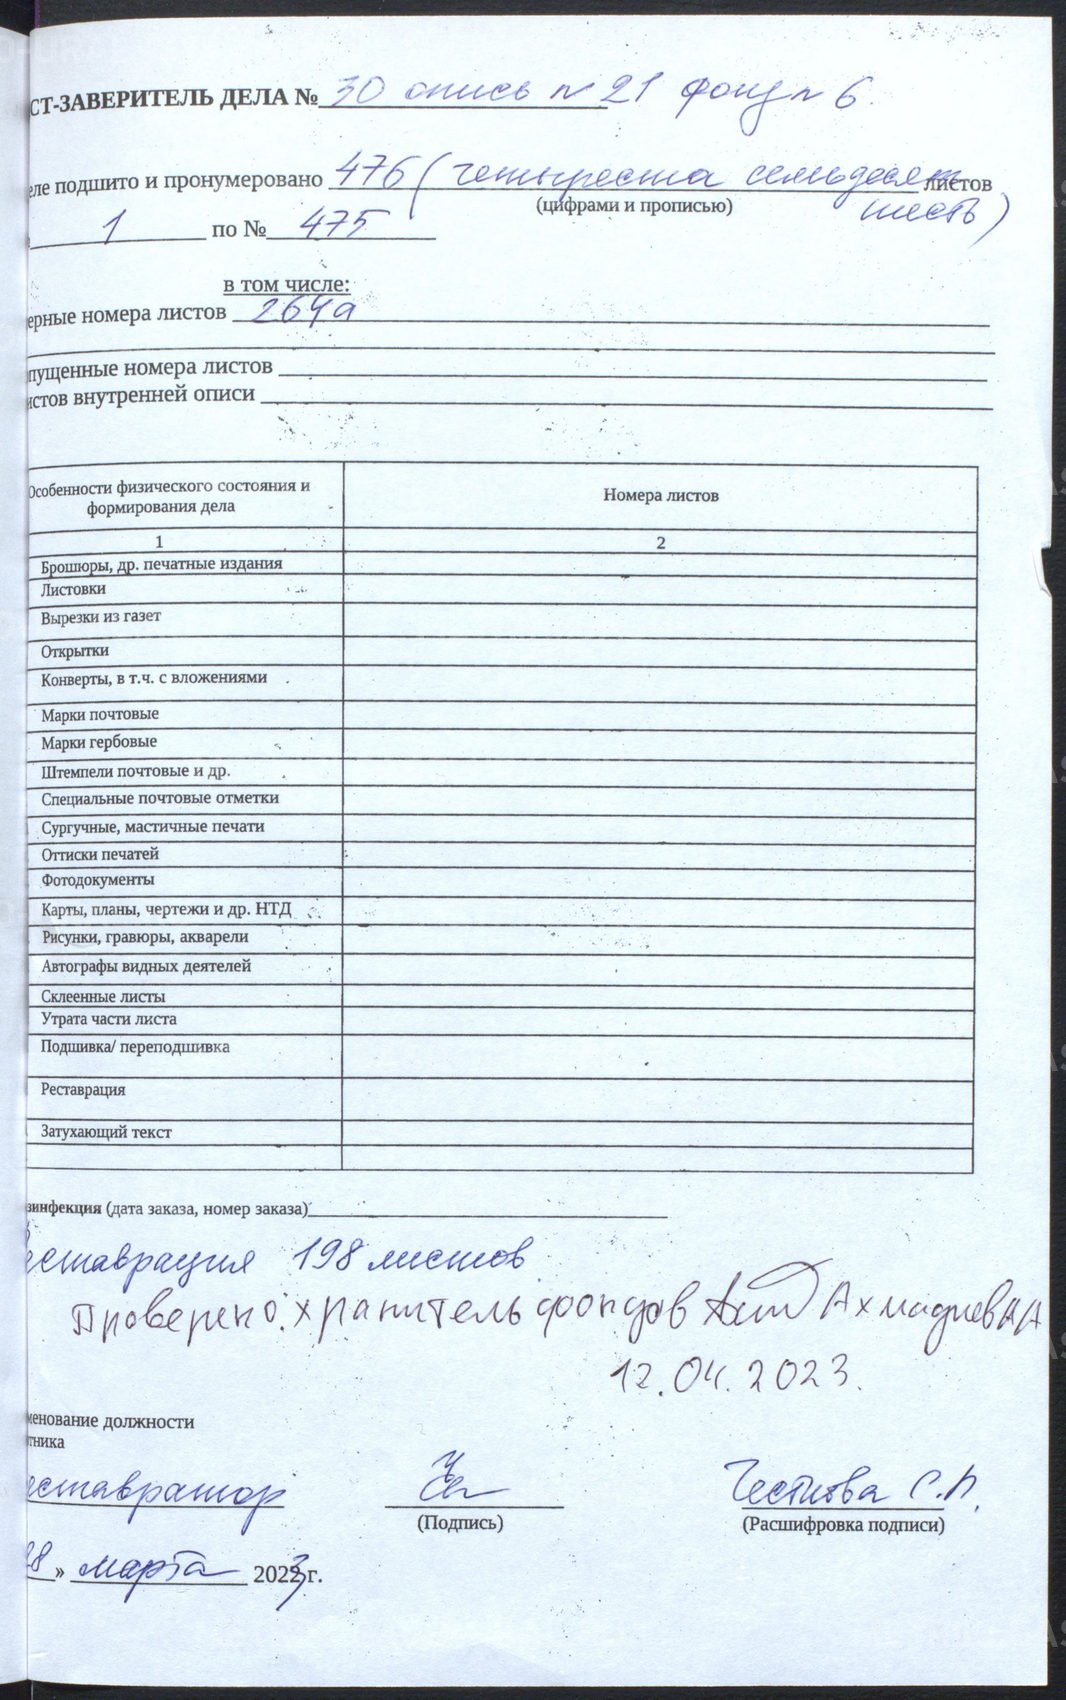 СТ-ЗАВЕРИТЕЛЬ ДЕЛА № 30 опись № 21 фонд № 6
еле подшито и пронумеровано 476 (четыреста семьдесят листов
(цифрами и прописью) шесть)
1 по № 475
в том числе:
ерные номера листов 264а
пущенные номера листов
истов внутренней описи
Особенности физического состояния и формирования дела
Номера листов
1
2
Брошюры, др. печатные издания
Листовки
Вырезки из газет
Открытки
Конверты, в т.ч. с вложениями
Марки почтовые
Марки гербовые
Штемпели почтовые и др.
Специальные почтовые отметки
Сургучные, мастичные печати
Оттиски печатей
Фотодокументы
Карты, планы, чертежи и др. НТД
Рисунки, гравюры, акварели
Автографы видных деятелей
Склеенные листы
Утрата части листа
Подшивка/ переподшивка
Реставрация
Затухающий текст
зинфекция (дата заказа, номер заказа)
еставрация 198 листов
Проверено: хранитель фондов Ахмадиев АА
12.04.2023.
менование должности
тника
еставратор
(Подпись)
(Расшифровка подписи)
28 » марта 2023 г.